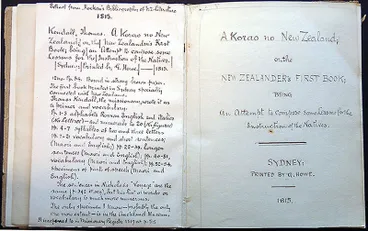 Extract from Hocken's Bibliography of N.Z. Literature
1815.
Kendall, Thomas. A Korao no New
Zealand; or, the New Zealander's First
Book; being an Attempt to compose some
Lessons for the Instruction of the Natives.
Sydney: Printed by G. Howe — 1815.
12mo. Pp. 54. Bound in strong brown paper.
The first book printed in Sydney specially
connected with New Zealand.
Thomas Kendall, the missionary, wrote it as
a primer and vocabulary.
Pp. 1-3 alphabets Roman English and italics
and numerals to
pp. 4-7 syllables of two and three letters
pp. 7-21 vocabulary and short sentences;
(Maori and English); pp. longer
sentences (Maori and English);
vocabulary (Maori and English);
specimens of parts of speech (Maori and
English).
The sentences in Nicholas' Voyage are the
same but his list of words or
vocabulary is much more numerous.
The only specimen I know — probably the only
one now extant — is in the Auckland Museum
Missionary Register
A Korao no New Zealand;
or, the
NEW ZEALANDER'S FIRST BOOK;
Being
An Attempt to Compose some Lessons for the
Instruction of the Natives.
SYDNEY:
PRINTED BY G. HOWE.
1815.